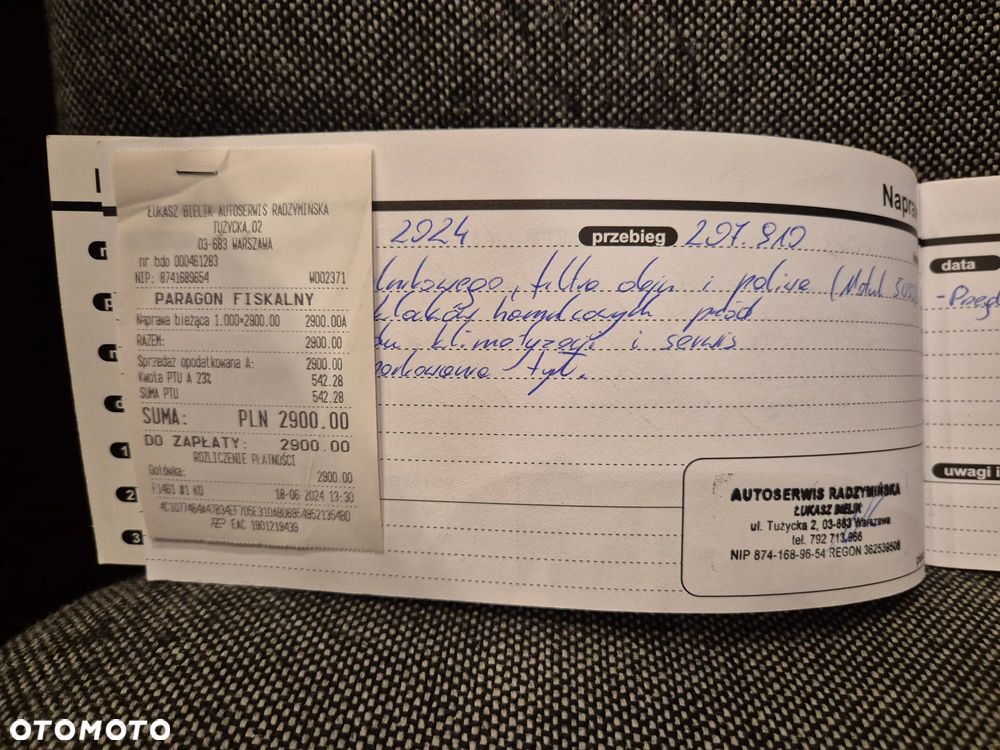 Napra
ŁUKASZ BIELIK AUTOSERWIS RADZYMIŃSKA
TUŻYCKA 02
03-683 WARSZAWA
nr bdo 000461283
NIP: 8741689654 W002371
PARAGON FISKALNY
Naprawa bieżąca 1.000*2900.00 2900.00A
RAZEM: 2900.00
Sprzedaż opodatkowana A: 2900.00
Kwota PTU A 23% 542.28
SUMA PTU 542.28
SUMA: PLN 2900.00
DO ZAPŁATY: 2900.00
ROZLICZENIE PŁATNOŚCI
Gotówka: 2900.00
F1461 #1 KD 18-06-2024 13:30
EAC 1901219439
2024 przebieg 207.910
filtra oleju i paliwa
hamulcowych przód
klimatyzacji i serwis
tył.
1
2
3
AUTOSERWIS RADZYMIŃSKA
ŁUKASZ BIELIK
ul. Tużycka 2, 03-683 Warszawa
tel. 792 713 966
NIP 874-168-96-54 REGON 362539508
data
uwagi i
OTOMOTO